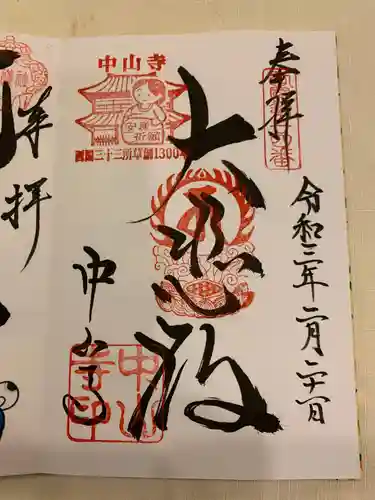 奉拝
令和三年二月二十一日
大悲殿
中山寺
西国三十三所草創1300
中山寺
中山
寺印
奉拝